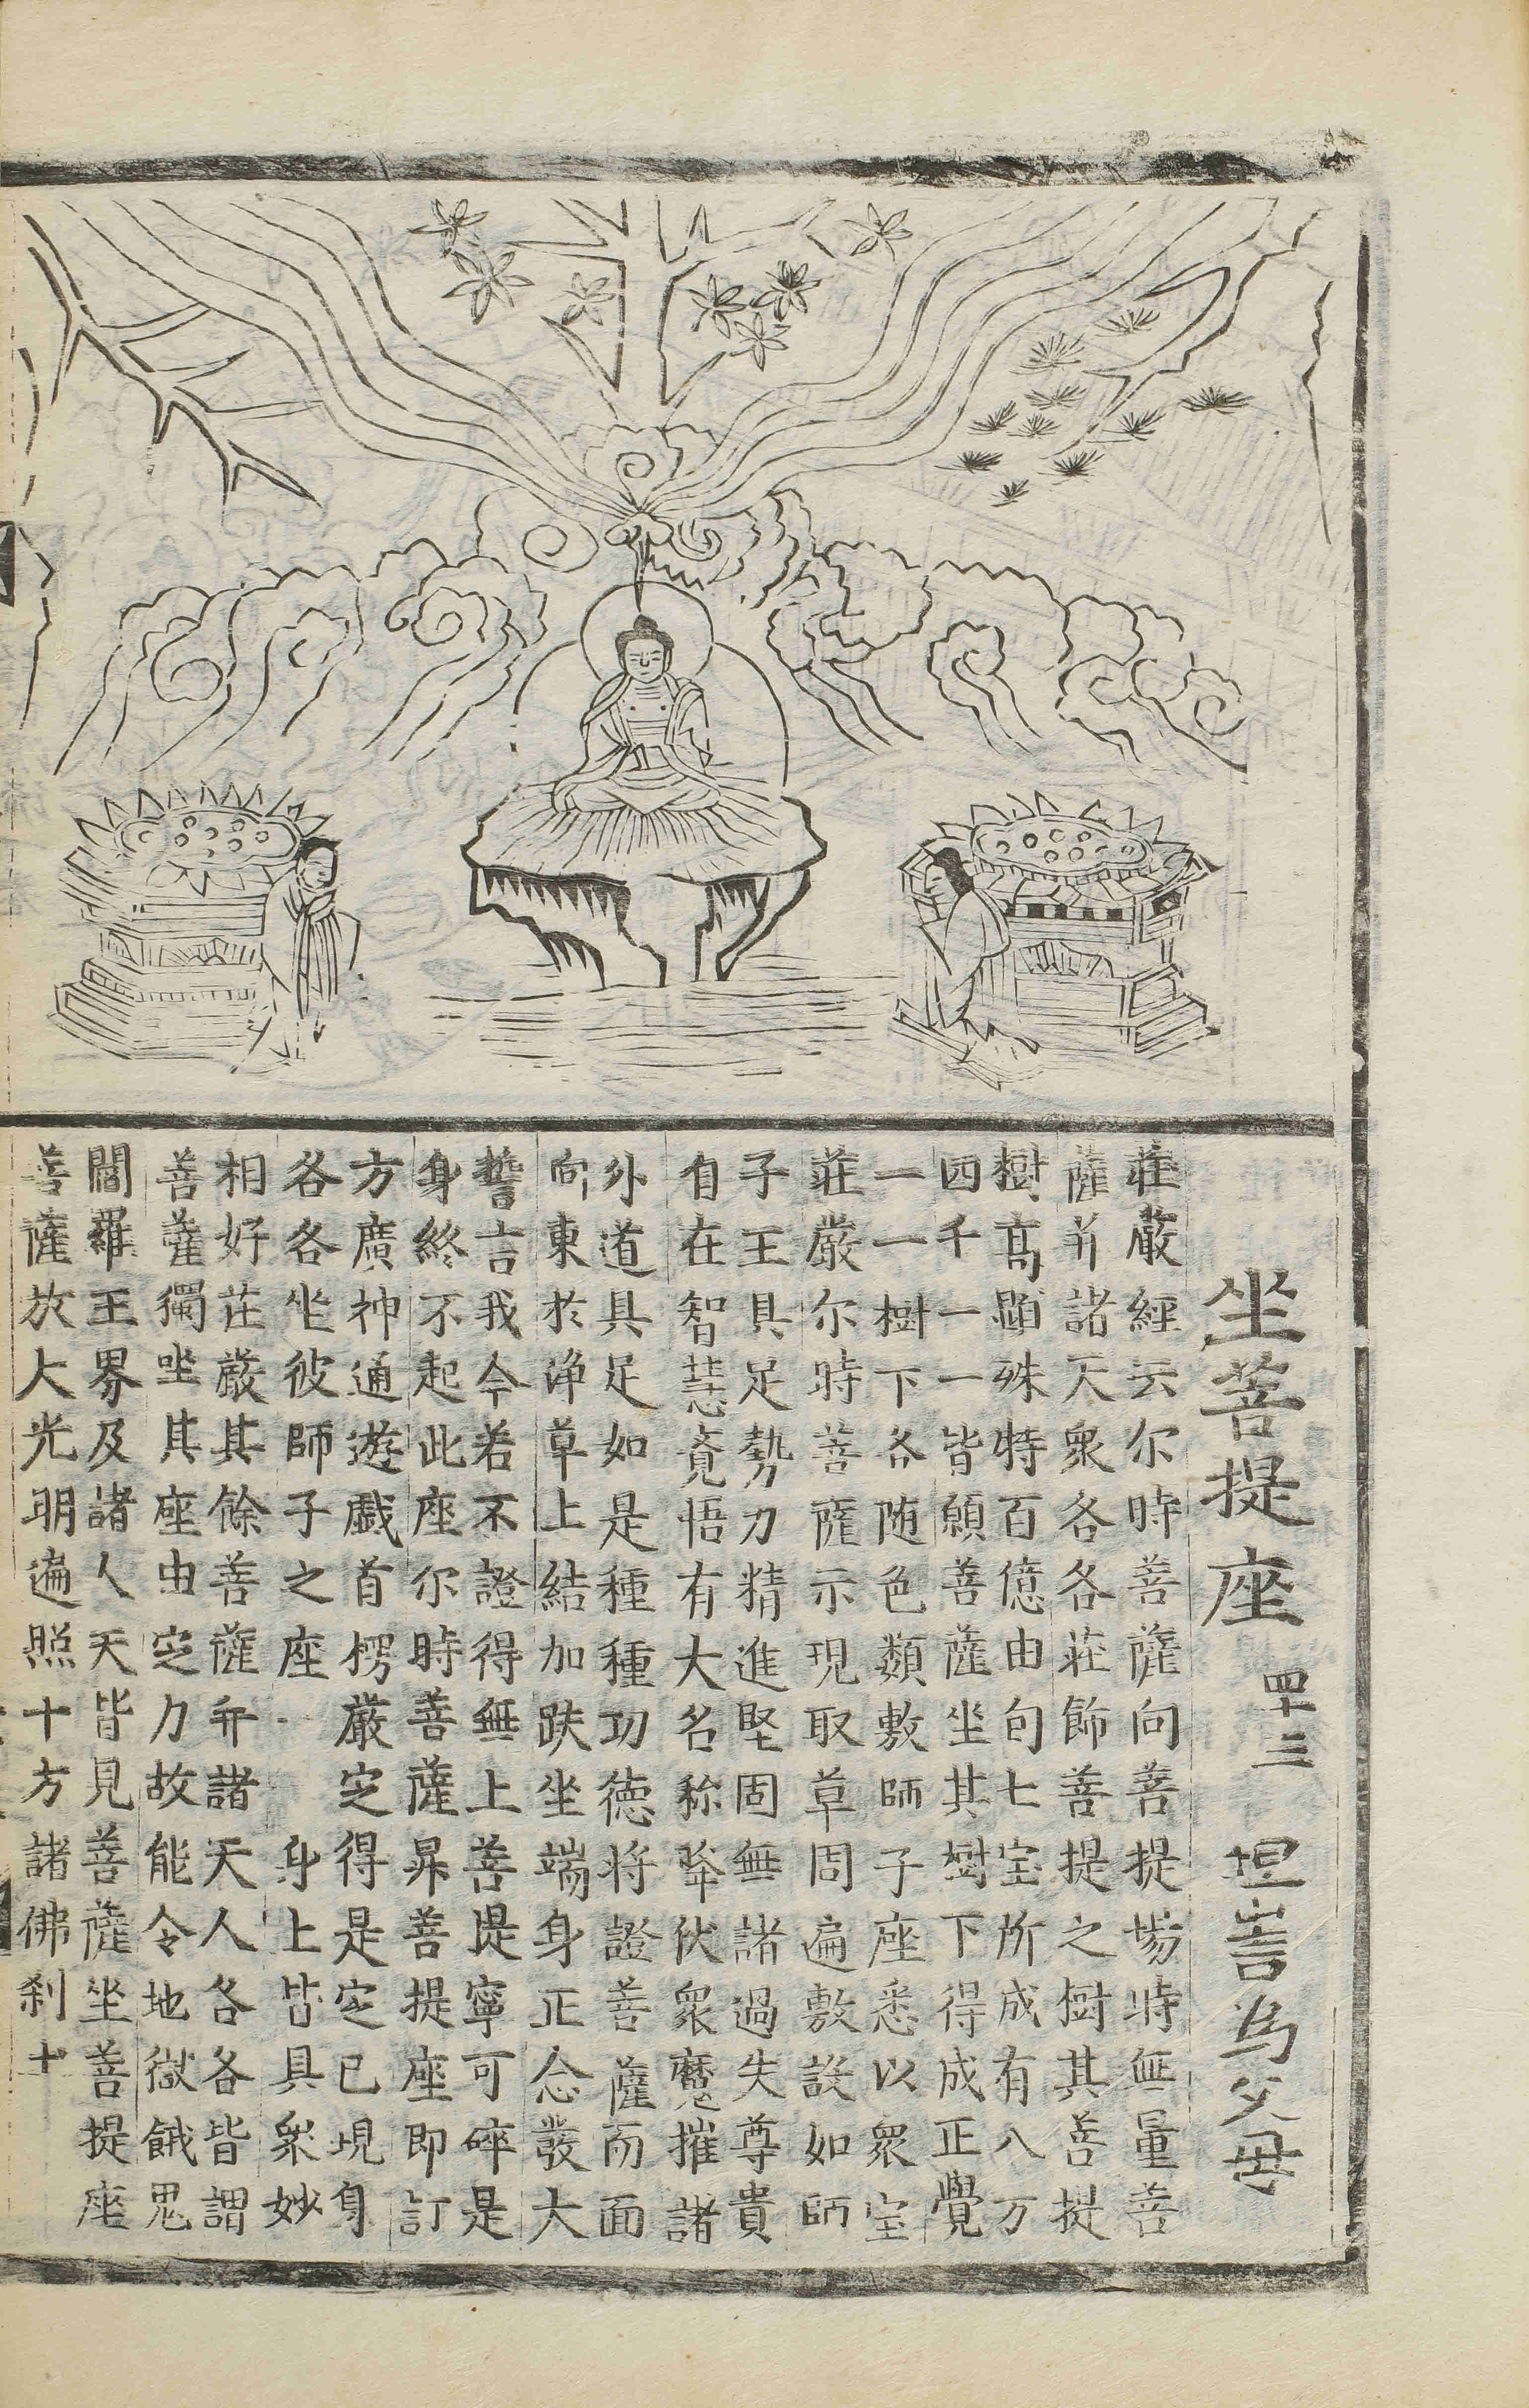 坐菩提座 四十三 坦訔為父母
莊嚴經云尔時菩薩向菩提場時無量菩
薩并諸天衆各各莊飾菩提之樹其菩提
樹高顯殊特百億由旬七宝所成有八万
四千一一皆願菩薩坐其樹下得成正覺
一一樹下各随色類敷師子座悉以衆宝
莊嚴尔時菩薩示現取草周遍敷設如師
子王具足勢力精進堅固無諸過失尊貴
自在智慧覔悟有大名称降伏衆魔摧諸
外道具足如是種種功德将證菩薩而面
向東扵淨草上結加趺坐端身正念發大
誓言我今若不證得無上菩提寧可碎是
身終不起此座尔時菩薩昇菩提座即訂
方廣神通遊戲首楞嚴定得是定已現身
各各坐彼師子之座身上皆具衆妙
相好莊嚴其餘菩薩并諸天人各各皆謂
菩薩獨坐其座由定力故能令地獄餓鬼
閻羅王界及諸人天皆見菩薩坐菩提座
菩薩放大光明遍照十方諸佛刹土